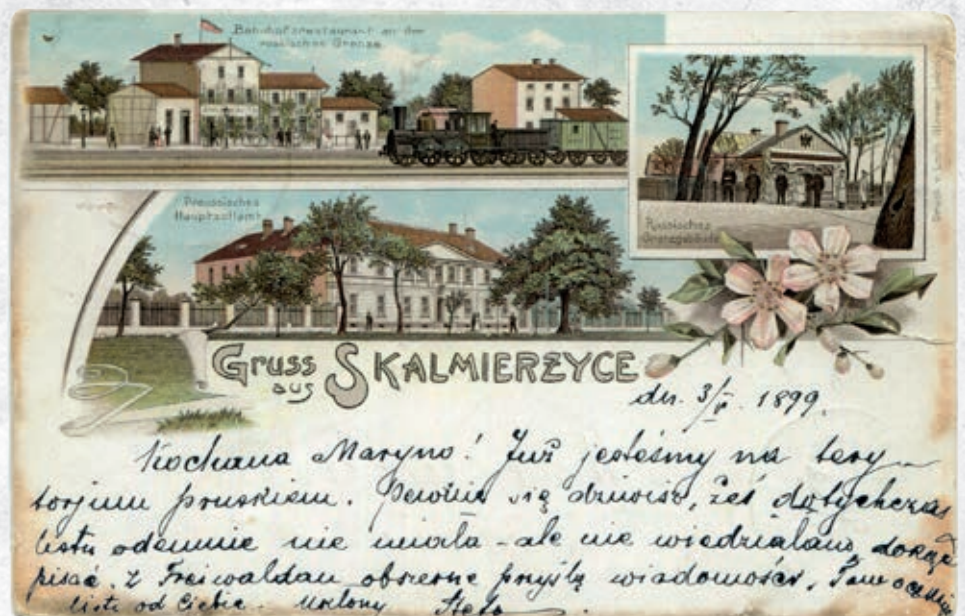 Bahnhofsrestaurant an der
russischen Grenze
Russisches
Grenzgebäude
Preussisches
Hauptzollamt
Gruss
aus
SKALMIERZYCE
dn. 3/V. 1899.
Kochana Maryno! Już jesteśmy na tery
torjum pruskiem. Pewnie się dziwisz, żeś dotychczas
listu odemnie nie miała - ale nie wiedziałam, dokąd
pisać. Z Freiwaldau obszerne przyślę wiadomości. Tam
listu od Ciebie.